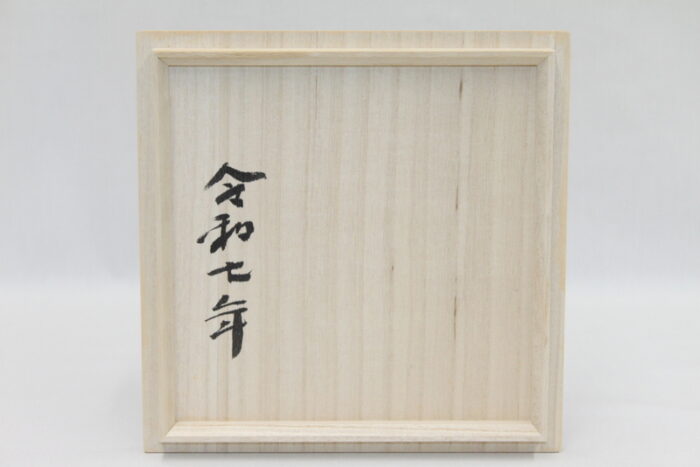 令和七年